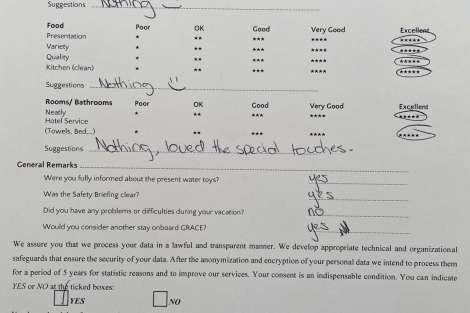 Suggestions Nothing
Food Poor OK Good Very Good Excellent
Presentation * ** *** **** *****
Variety * ** *** **** *****
Quality * ** *** **** *****
Kitchen (clean) * ** *** **** *****
Suggestions Nothing
Rooms/ Bathrooms Poor OK Good Very Good Excellent
Neatly * ** *** **** *****
Hotel Service
(Towels, Bed...) * ** *** **** *****
Suggestions Nothing, loved the special touches.
General Remarks
Were you fully informed about the present water toys? yes
Was the Safety Briefing clear? yes
Did you have any problems or difficulties during your vacation? no
Would you consider another stay onboard GRACE? yes
We assure you that we process your data in a lawful and transparent manner. We develop appropriate technical and organizational
safeguards that ensure the security of your data. After the anonymization and encryption of your personal data we intend to process them
for a period of 5 years for statistic reasons and to improve our services. Your consent is an indispensable condition. You can indicate
YES or NO at the ticked boxes:
YES NO